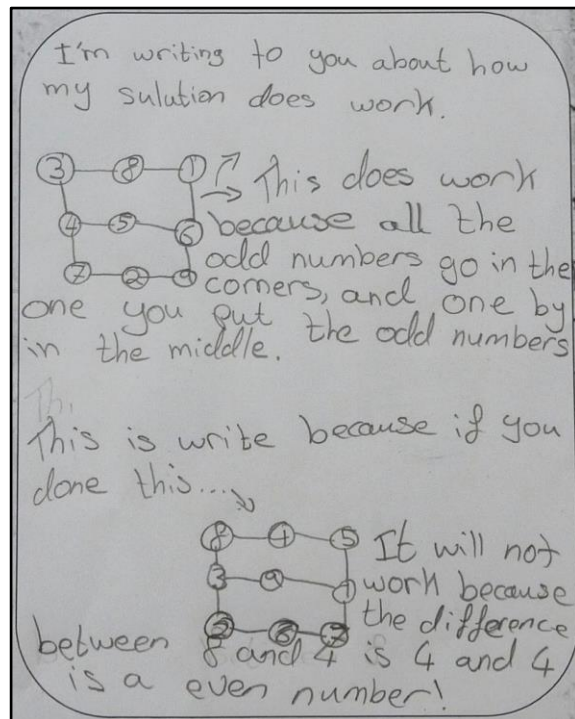 I'm writing to you about how
my sulution does work.
3 8 1 This does work
4 5 6 because all the
odd numbers go in the
7 2 9 corners, and one by
one you put the odd numbers
in the middle.
Thi
This is write because if you
done this...
8 4 5 It will not
3 9 1 work because
2 6 7 the difference
between 8 and 4 is 4 and 4
is a even number!